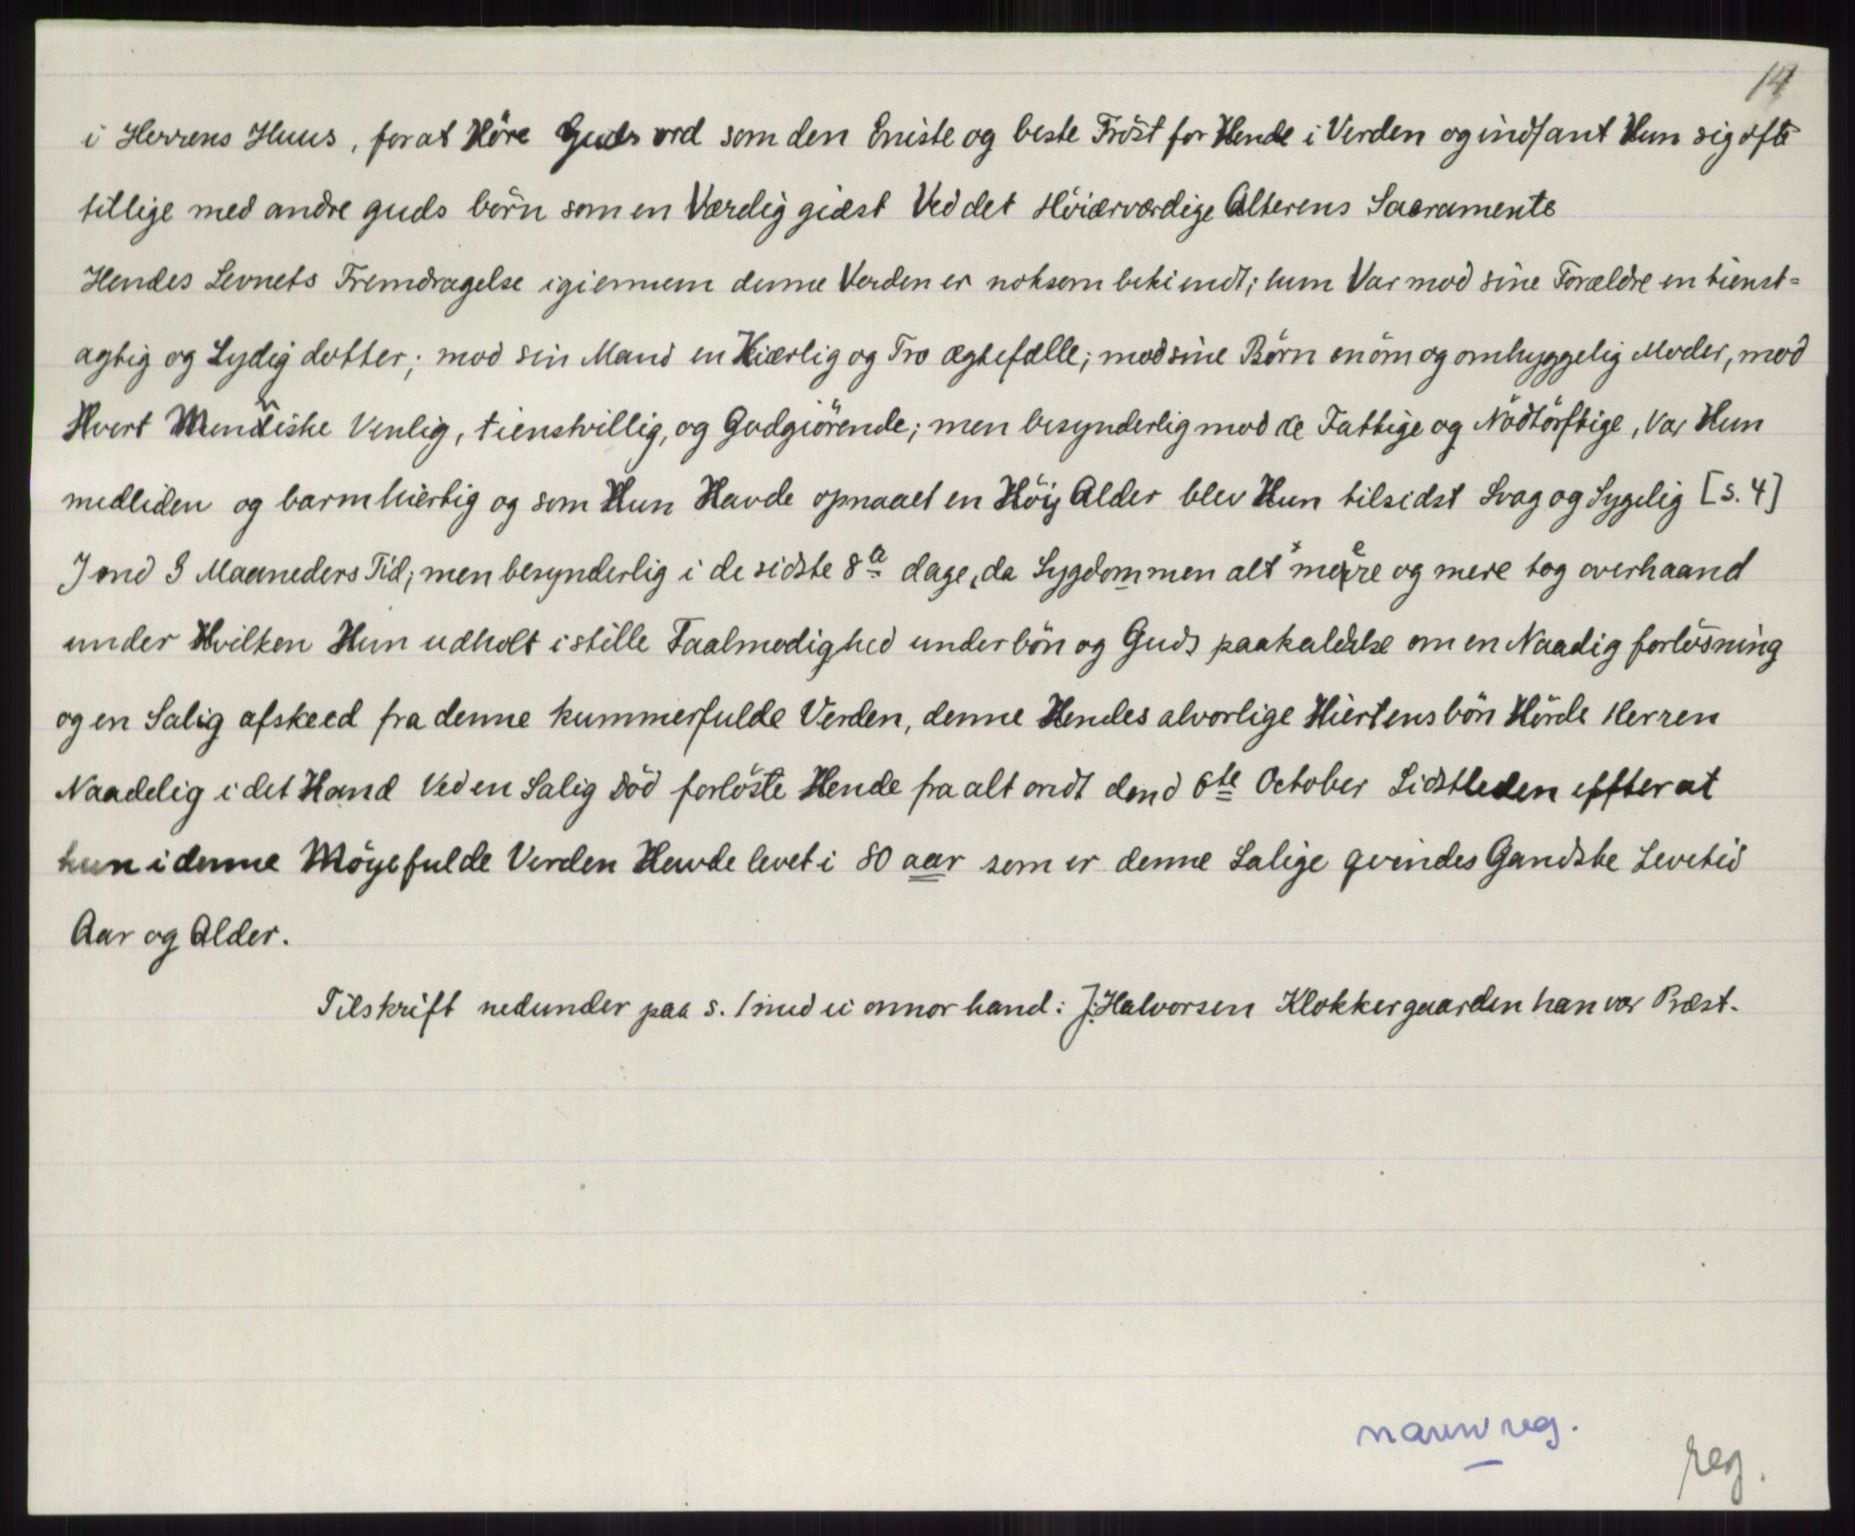 14
i Herrens Huus, for at Höre Guds ord som den Eniste og beste Tröst for Hende i Verden og indfant Hun sig ofte
tillige med andre guds börn som en Værdig giæst Ved det Höiærværdige Alterens Sacramente
Hendes Levnets Fremdragelse igiennem denne Verden er noksom bekiendt; hun Var mod sine Forældre en tienst=
agtig og Lydig dotter; mod sin Mand en Kiærlig og Tro ægtefælle; mod sine Børn en öm og omhyggelig Moder, mod
Hvert Menniske Venlig, tienstvillig, og Godgiörende; men besynderlig mod de Fattige og Nödtörftige, Var Hun
medliden og barmhiertig og som Hun Havde opnaaet en Höij Alder blev Hun tilsidst Svag og Sygelig [s. 4]
J ond 3 Maaneders Tid; men besynderlig i de sidste 8te dage, da Sygdommen alt meere og mere tog overhaand
under Hvilken Hun udholt i stille Taalmodighed under bön og Guds paakaldelse om en Naadig forlösning
og en Salig afskeed fra denne kummerfulde Verden, denne Hendes alvorlige Hiertens bön Hörde Herren
Naadelig i det Hand Ved en Salig Död forlöste Hende fra alt ondt dend 6te October Sidstleden effter at
hun i denne Möyefulde Verden Havde levet i 80 aar som er denne Salige qvindes Gandske Levetid
Aar og Alder.
Tilskrift nedunder paa s. 1 med ei onnor hand: J. Halvorsen Klokkergaarden han var Præst.
navnreg.
reg.